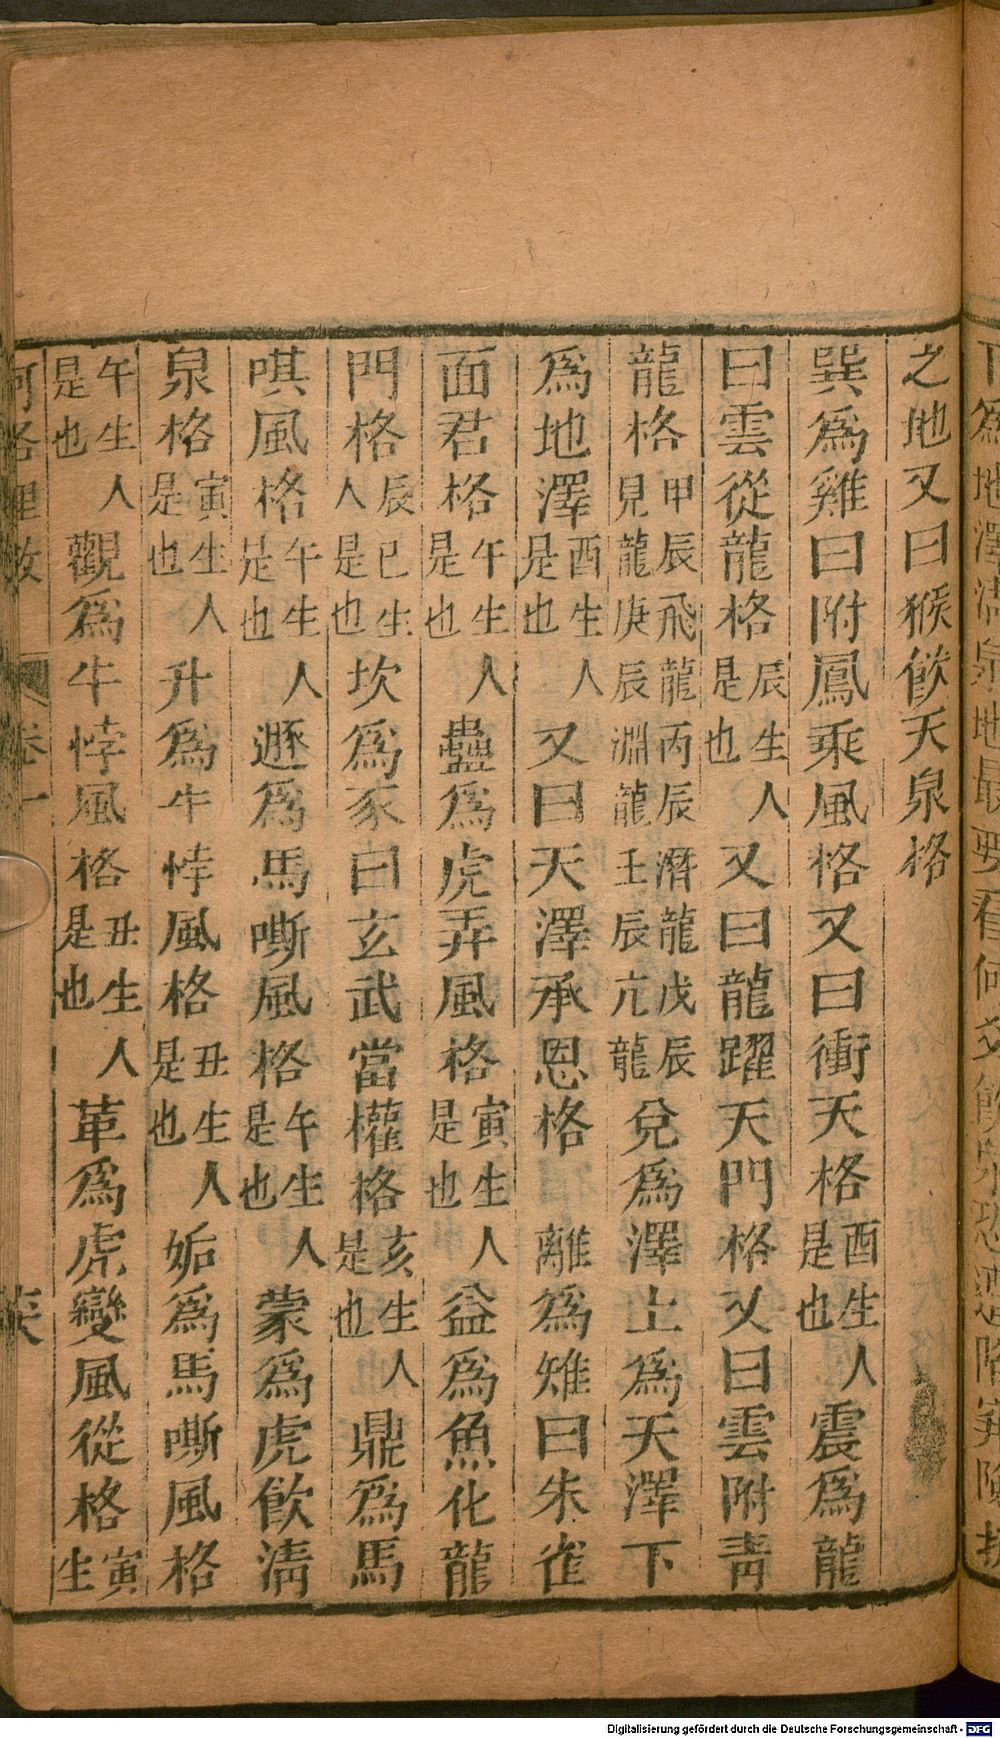 之地又曰猴飲天泉格
巽爲雞曰附鳳乘風格又曰衝天格酉生人是也震爲龍
曰雲從龍格辰生人是也又曰龍躍天門格又曰雲附青
龍格甲辰飛龍丙辰潛龍戊辰見龍庚辰淵龍壬辰亢龍兌爲澤上爲天澤下
爲地澤酉生人是也又曰天澤承恩格離爲雉曰朱雀
面君格午生人是也蠱爲虎弄風格寅生人是也益爲魚化龍
門格辰巳生人是也坎爲豕曰玄武當權格亥生人是也鼎爲馬
唭風格午生人是也遯爲馬嘶風格午生人是也蒙爲虎飲清
泉格寅生人是也升爲牛悖風格丑生人是也姤爲馬嘶風格
午生人是也觀爲牛悖風格丑生人是也革爲虎變風從格寅生
卷一
Digitalisierung gefördert durch die Deutsche Forschungsgemeinschaft - DFG